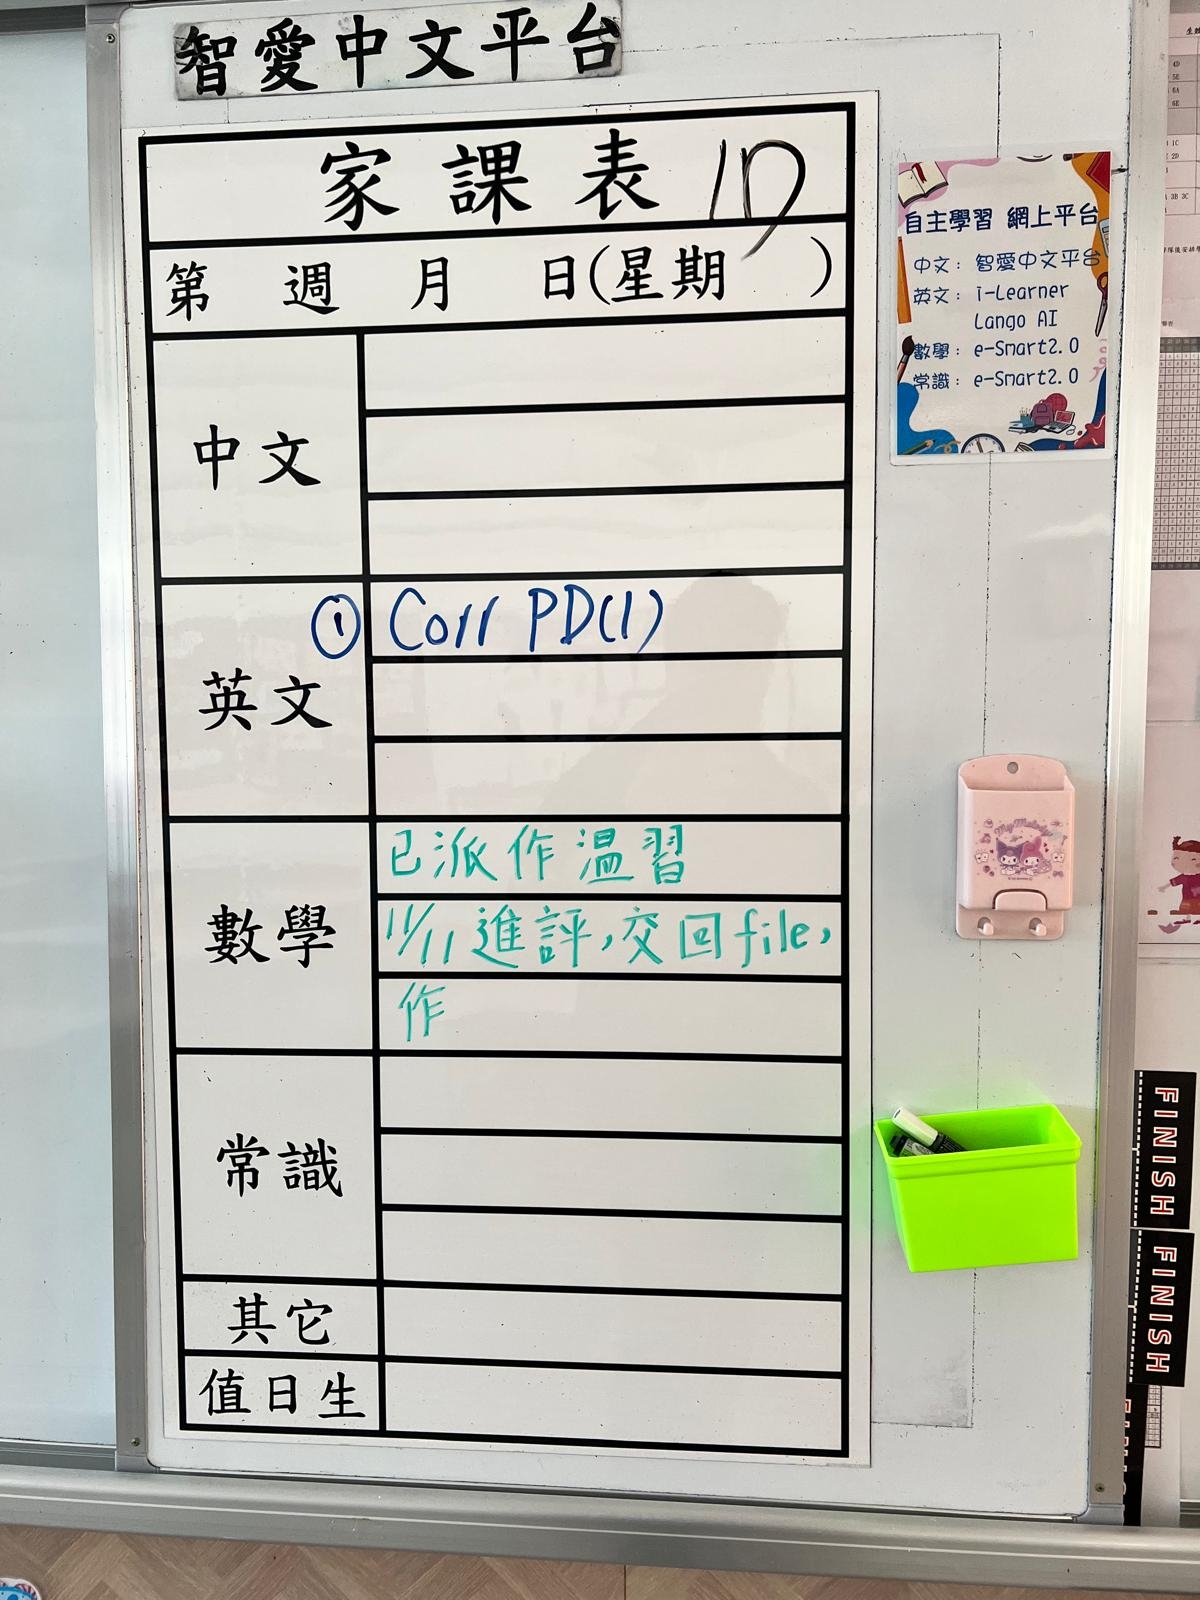 智愛中文平台
家課表 1D
第 週 月 日(星期 )
中文
英文
① Corr PD(1)
數學
已派作温習
11/11 進評,交回file,
作
常識
其它
值日生
自主學習 網上平台
中文: 智愛中文平台
英文: i-Learner
Lango AI
數學: e-Smart2.0
常識: e-Smart2.0
My Melody
FINISH
FINISH
4D
5E
6A
6E
1C
2D
3B 3C